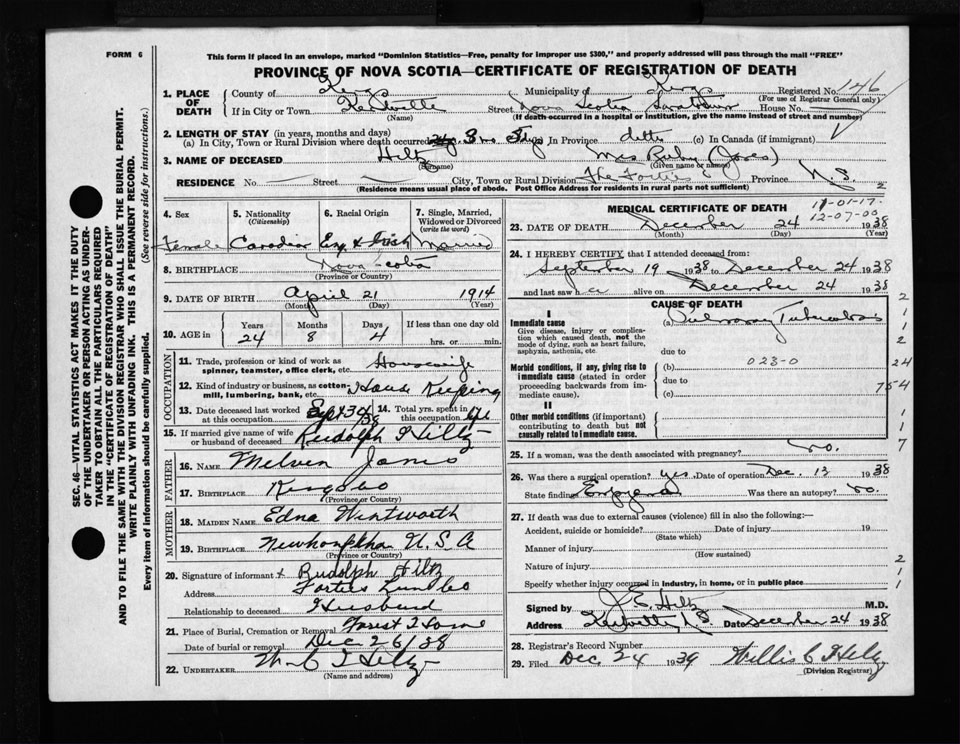 FORM 6
This form if placed in an envelope, marked "Dominion Statistics—Free, penalty for improper use $300," and properly addressed will pass through the mail "FREE"
PROVINCE OF NOVA SCOTIA—CERTIFICATE OF REGISTRATION OF DEATH
1. PLACE OF DEATH County of Kings Municipality of Kings Registered No. 146
(For use of Registrar General only)
If in City or Town Kentville Street Nova Scotia Sanatorium House No.
(Name) (If death occurred in a hospital or institution, give the name instead of street and number)
2. LENGTH OF STAY (in years, months and days)
(a) In City, Town or Rural Division where death occurred 3 mo 5 dys (b) In Province ditto (c) In Canada (if immigrant)
3. NAME OF DECEASED Hiltz Mrs Ruby (Joses)
(Surname) (Given name or names)
RESIDENCE No. Street City, Town or Rural Division The Forties Province N.S.
(Residence means usual place of abode. Post Office Address for residents in rural parts not sufficient)
2
SEC. 46—VITAL STATISTICS ACT MAKES IT THE DUTY
OF THE UNDERTAKER OR PERSON ACTING AS UNDER-
TAKER TO OBTAIN ALL THE PARTICULARS REQUIRED
IN THE "CERTIFICATE OF REGISTRATION OF DEATH"
AND TO FILE THE SAME WITH THE DIVISION REGISTRAR WHO SHALL ISSUE THE BURIAL PERMIT.
WRITE PLAINLY WITH UNFADING INK. THIS IS A PERMANENT RECORD.
Every item of information should be carefully supplied. (See reverse side for instructions.)
4. Sex Female
5. Nationality (Citizenship) Canadian
6. Racial Origin Eng & Irish
7. Single, Married, Widowed or Divorced (write the word) Married
8. BIRTHPLACE Nova Scotia
(Province or Country)
9. DATE OF BIRTH April 21 1914
(Month) (Day) (Year)
10. AGE in Years Months Days If less than one day old
24 8 4 hrs. or min.
OCCUPATION
11. Trade, profession or kind of work as spinner, teamster, office clerk, etc. Housewife
12. Kind of industry or business, as cotton-mill, lumbering, bank, etc. House Keeping
13. Date deceased last worked at this occupation
14. Total yrs. spent in this occupation
15. If married give name of wife or husband of deceased Rudolph Hiltz
FATHER
16. NAME Melven James
17. BIRTHPLACE Kings Co
(Province or Country)
MOTHER
18. MAIDEN NAME Edna Wentworth
19. BIRTHPLACE U.S.A
(Province or Country)
20. Signature of informant x Rudolph Hiltz
Address Forties Lun Co
Relationship to deceased Husband
21. Place of Burial, Cremation or Removal Forest Home
Date of burial or removal Dec 26/38
22. UNDERTAKER Hiltz
(Name and address)
MEDICAL CERTIFICATE OF DEATH
11-01-17
12-07-00
23. DATE OF DEATH December 24 1938
(Month) (Day) (Year)
24. I HEREBY CERTIFY that I attended deceased from:
September 19 1938 to December 24 1938
and last saw her alive on December 24 1938
CAUSE OF DEATH
I
Immediate cause (a) Pulmonary Tuberculosis
Give disease, injury or complication which caused death, not the mode of dying, such as heart failure, asphyxia, asthenia, etc.
due to
Morbid conditions, if any, giving rise to immediate cause (stated in order proceeding backwards from immediate cause).
(b) 023-0
due to
(c)
II
Other morbid conditions (if important) contributing to death but not causally related to immediate cause.
2
1
1
2
24
754
1
1
1
7
25. If a woman, was the death associated with pregnancy? no.
26. Was there a surgical operation? yes. Date of operation Dec. 13 1938
State findings Empyema Was there an autopsy? no.
27. If death was due to external causes (violence) fill in also the following:—
Accident, suicide or homicide? Date of injury 19
(State which)
Manner of injury
(How sustained)
Nature of injury
Specify whether injury occurred in industry, in home, or in public place
2
1
1
Signed by J.E. Hiltz M.D.
Address Kentville N.S. Date December 24 1938
28. Registrar's Record Number
29. Filed Dec 24 1939 Willis C Hiltz
(Division Registrar)